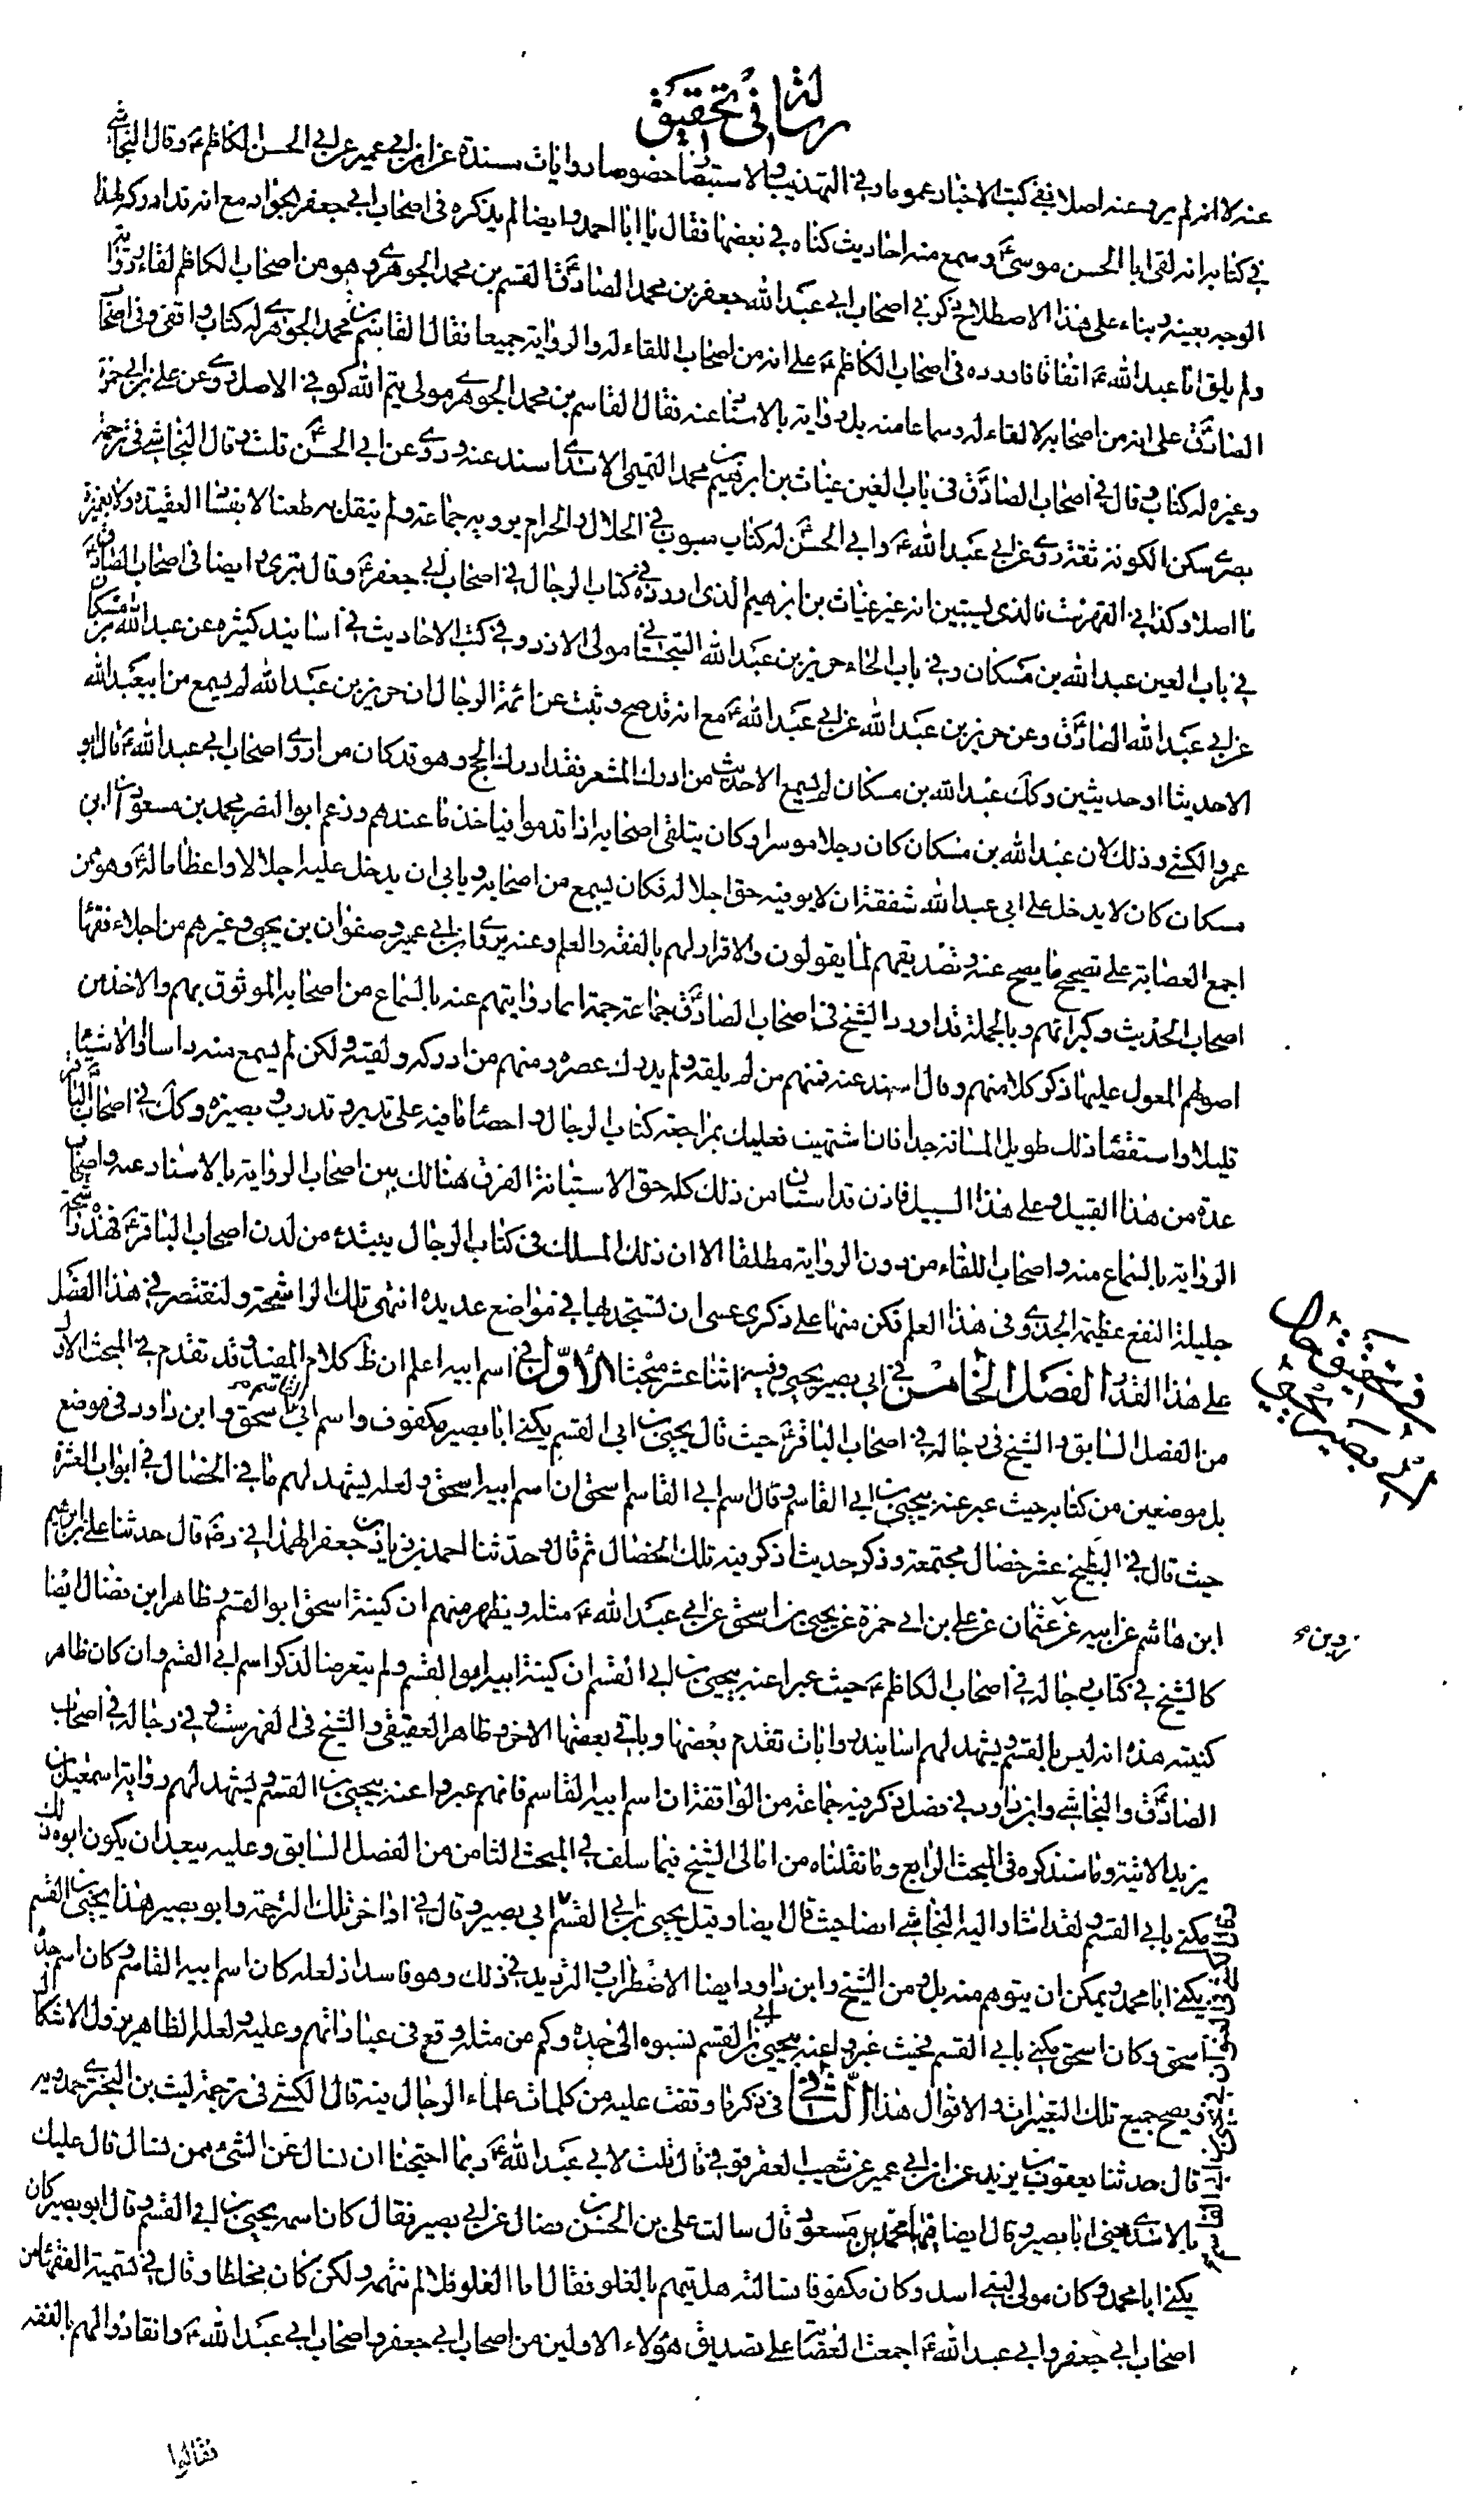 رسالة في تحقيق
عنه لا انه لم يرو عنه اصلا ففي كتب الاخبار عموما وفي التهذيب والاستبصار خصوصا روايات مسندة عن ابن ابي عمير عن ابي الحسن الكاظم ع وقال النجاشي
في كتابه انه لقي ابا الحسن موسى ع وسمع منه احاديث كناه في بعضها فقال يا ابا احمد وايضا لم يذكره في اصحاب ابي جعفر الجواد مع انه قد ادركه لهذا
الوجه بعينه وبناء على هذا الاصطلاح ذكر في اصحاب ابي عبد الله جعفر بن محمد الصادق القسم بن محمد الجوهري وهو من اصحاب الكاظم لقاء ورواية
ولم يلق ابا عبد الله ع اتفاقا فاورده في اصحاب الكاظم ع على انه من اصحاب اللقاء له والرواية جميعا فقال القاسم بن محمد الجوهري له كتاب واقفي وفي اصحاب
الصادق على انه من اصحابه لا لقاء له وسماعا منه بل رواية بالاسناد عنه فقال القاسم بن محمد الجوهري مولى تيم الله كوفي الاصل روى عن علي بن ابي حمزة
وغيره له كتاب وقال في اصحاب الصادق في باب الغين غياث بن ابرهيم بن محمد التميمي الاسدي اسند عنه وروى عن ابي الحسن قلت وقال النجاشي في ترجمته
بصري سكن الكوفة ثقة روى عن ابي عبد الله ع وابي الحسن له كتاب مبوب في الحلال والحرام يرويه جماعة ولم ينقل به طعنا لا بفساد العقيدة ولا بغيره
ما اصلا وكذا في الفهرست فالذي يستبين انه غير غياث بن ابرهيم الذي اورده في كتاب الرجال في اصحاب ابي جعفر ع وقال بتري وايضا في اصحاب الصادق
في باب العين عبد الله بن مسكان وفي باب الحاء حريز بن عبد الله السجستاني مولى الازد وفي كتب الاحاديث في اسانيد كثيرة عن عبد الله بن مسكان
عن ابي عبد الله الصادق وعن حريز بن عبد الله عن ابي عبد الله ع مع انه قد صح وثبت عن ائمة الرجال ان حريز بن عبد الله لم يسمع من ابي عبد الله
الا حديثا او حديثين وكك عبد الله بن مسكان لم يسمع الا حديث من ادرك المشعر فقد ادرك الحج وهو قد كان من اروى اصحاب ابي عبد الله ع قال ابو
عمرو الكشي وذلك لان عبد الله بن مسكان كان رجلا موسرا وكان يتلقى اصحابه اذا قدموا فياخذ ما عندهم وزعم ابو النضر محمد بن مسعود ان ابن
مسكان كان لا يدخل على ابي عبد الله شفقة ان لا يوفيه حق اجلاله فكان يسمع من اصحابه ويابى ان يدخل عليه اجلالا واعظاما له ع وهو ممن
اجمع العصابة على تصحيح ما يصح عنه وتصديقهم لما يقولون والاقرار لهم بالفقه والعلم وعنه يروي ابن ابي عمير وصفوان بن يحيى وغيرهم من اجلاء فقهاء
اصحاب الحديث وكبرائهم وبالجملة قد اورد الشيخ في اصحاب الصادق جماعة جمة انما روايتهم عنه بالسماع من اصحابه الموثوق بهم والاخذ من
اصولهم المعول عليها ذكر كلا منهم وقال اسند عنه فمنهم من لم يلقه ولم يدرك عصره ومنهم من ادركه ولقيه ولكن لم يسمع منه راسا او الا شيئا
قليلا واستقصاء ذلك طويل المسافة جدا فان اشتهيت فعليك بمراجعة كتاب الرجال واحصاء ما فيه على تدبر وتدرب وبصيرة وكك في اصحاب الباقر
عدة من هذا القبيل وعلى هذا السبيل فاذن قد استبان من ذلك كله حق الاستبانة الفرق هنالك بين اصحاب الرواية بالاسناد عنه واصحاب
الرواية بالسماع منه واصحاب اللقاء من دون الرواية مطلقا الا ان ذلك المسلك في كتاب الرجال يبتدء من لدن اصحاب الباقر ع فهذه راشحة
جليلة النفع عظيمة الجدوى في هذا العلم فكن منها على ذكرى عسى ان تستجد بها في مواضع عديدة انتهى تلك الراشحة ولنقتصر في هذا الفصل
على هذا القدر الفصل الخامس في ابي بصير يحيى وفيه اثنا عشر مبحثا الاول في اسم ابيه اعلم ان ظ كلام المفيد وقد تقدم في المبحث الاول
من الفصل السابق والشيخ في رجاله في اصحاب الباقر ع حيث قال يحيى بن ابي القسم يكنى ابا بصير مكفوف واسم ابي القاسم اسحق وابن داود في موضع
بل موضعين من كتابه حيث عبر عنه بيحيى بن ابي القاسم وقال اسم ابي القاسم اسحق ان اسم ابيه اسحق ولعله يشهد لهم ما في الخصال في ابواب العشرة
حيث قال في البطيخ عشر خصال مجتمعة وذكر حديثا ذكر فيه تلك الخصال ثم قال وحدثنا احمد بن زياد بن جعفر الهمداني رضه قال حدثنا علي بن ابرهيم
ابن هاشم عن ابيه عن عثمان عن علي بن ابي حمزة عن يحيى بن اسحق عن ابي عبد الله ع مثله ويظهر منهم ان كنية اسحق ابو القسم وظاهر ابن فضال ايضا
كالشيخ في كتاب رجاله في اصحاب الكاظم ع حيث عبرا عنه بيحيى بن ابي القسم ان كنية ابيه ابو القسم ولم يتعرضا لذكر اسم ابي القسم وان كان ظاهر
كنيته هذه انه ليس بالقسم ويشهد لهم اسانيد روايات تقدم بعضها وياتي بعضها الاخر وظاهر العقيقي والشيخ في الفهرست وفي رجاله في اصحاب
الصادق والنجاشي وابن داود في فصل ذكر فيه جماعة من الواقفة ان اسم ابيه القاسم فانهم عبروا عنه بيحيى بن القسم ويشهد لهم رواية اسمعيل بن
يزيد الاتية وما سنذكره في المبحث الرابع وما نقلناه من امالي الشيخ فيما سلف في المبحث الثامن من الفصل السابق وعليه يبعد ان يكون ابوه ذلك
مكنى بابي القسم ولقد اشار اليه النجاشي ايضا حيث قال ايضا وقيل يحيى بن ابي القسم ابي بصير وقال في اواخر تلك الترجمة وابو بصير هذا يحيى بن القسم
يكنى ابا محمد ويمكن ان يتوهم منه بل ومن الشيخ وابن داود ايضا الاضطراب والترديد في ذلك وهو فاسد اذ لعله كان اسم ابيه القاسم وكان اسم جده
اسحق وكان اسحق يكنى بابي القسم فحيث عبروا عنه بيحيى بن ابي القسم نسبوه الى جده وكم من مثله وقع في عباراتهم وعليه ولعله الظاهر يزول الاشكال
ويصح جميع تلك التعبيرات والاقوال هذا الثاني في ذكر ما وقفت عليه من كلمات علماء الرجال فيه قال الكشي في ترجمة ليث بن البختري حمدويه
قال حدثنا يعقوب بن يزيد عن ابن ابي عمير عن شعيب العقرقوفي قال قلت لابي عبد الله ع ربما احتجنا ان نسال عن الشئ فمن نسال قال عليك
بالاسدي يعني ابا بصير وقال ايضا فيها محمد بن مسعود قال سالت علي بن الحسن بن فضال عن ابي بصير فقال كان اسمه يحيى بن ابي القسم وقال ابو بصير كان
يكنى ابا محمد وكان مولى لبني اسد وكان مكفوفا سالته هل يتهم بالغلو فقال اما الغلو فلا لم يتهم ولكن كان مخلطا وقال في تسمية الفقهاء من
اصحاب ابي جعفر وابي عبد الله ع اجمعت العصابة على تصديق هؤلاء الاولين من اصحاب ابي جعفر واصحاب ابي عبد الله ع وانقادوا لهم بالفقه
فقالوا
في تحقيق حال
ابي بصير يحيى